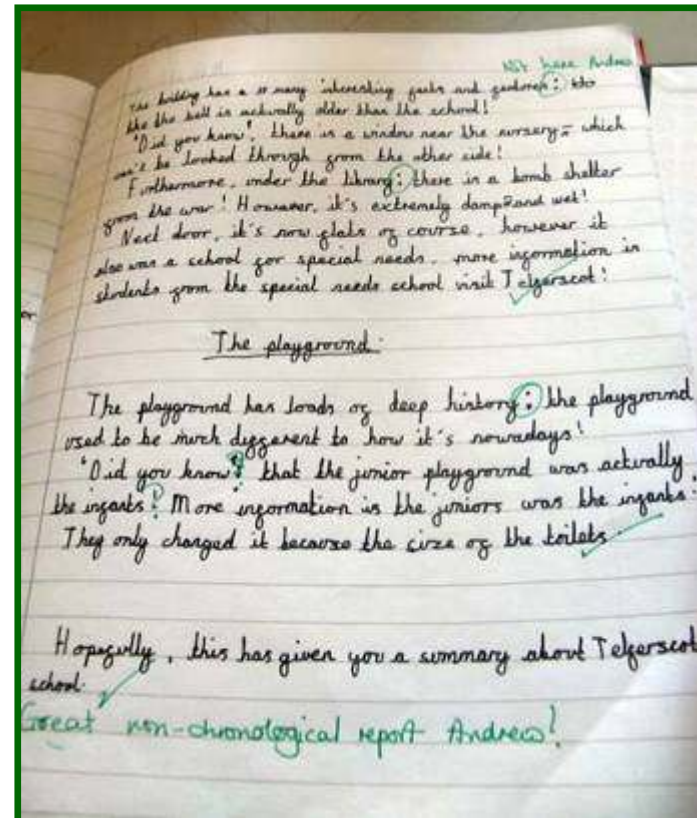 Andrew
The building has a many interesting facts and gardens;
the the bell is actually older than the school!
"Did you know", there is a window near the nursery - which
can't be looked through from the other side!
Furthermore, under the library; there is a bomb shelter
from the war! However, it's extremely damp and wet!
Next door, it's now flats of course, however it
also was a school for special needs, more information is
students from the special needs school visit Telferscot!
The playground.
The playground has loads of deep history; the playground
used to be much different to how it's nowadays!
"Did you know? that the junior playground was actually
the infants? More information is the juniors was the infants.
They only changed it because the size of the toilets
Hopefully, this has given you a summary about Telferscot
school.
Great non-chronological report Andrew!